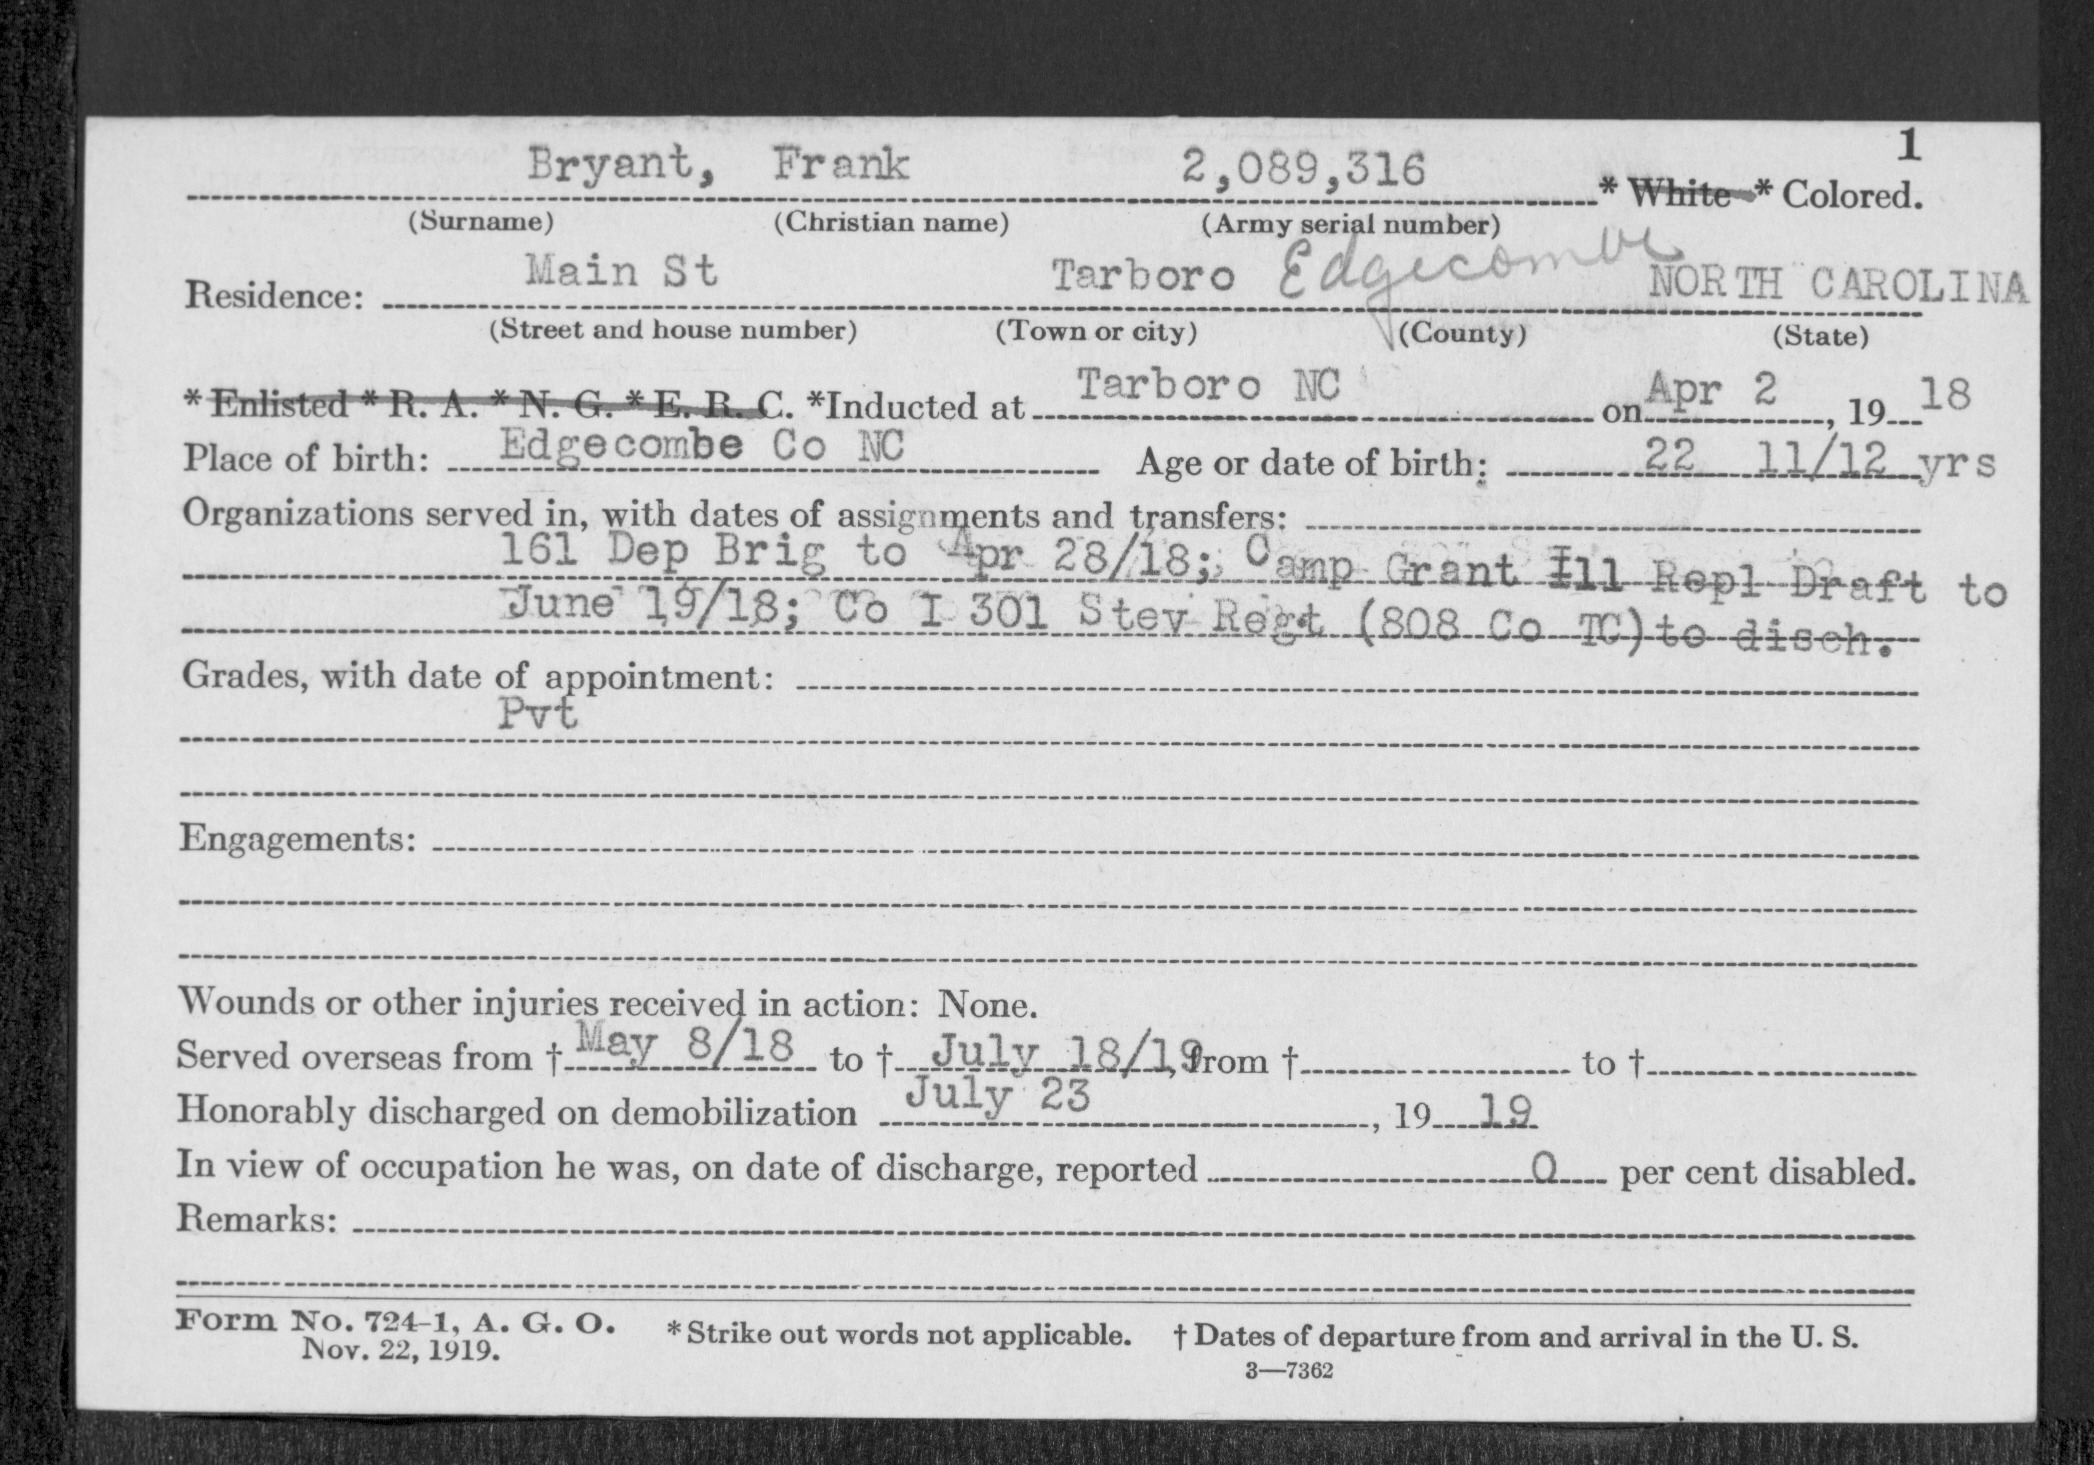 1
Bryant, Frank 2,089,316 * White * Colored.
(Surname) (Christian name) (Army serial number)
Residence: Main St Tarboro Edgecombe NORTH CAROLINA
(Street and house number) (Town or city) (County) (State)
* Enlisted * R. A. * N. G. * E. R. C. *Inducted at Tarboro NC on Apr 2, 19 18
Place of birth: Edgecombe Co NC Age or date of birth: 22 11/12 yrs
Organizations served in, with dates of assignments and transfers:
161 Dep Brig to Apr 28/18; Camp Grant Ill Repl Draft to
June 19/18; Co I 301 Stev Regt (808 Co TC) to disch.
Grades, with date of appointment:
Pvt
Engagements:
Wounds or other injuries received in action: None.
Served overseas from † May 8/18 to † July 18/19, from † to †
Honorably discharged on demobilization July 23, 19 19
In view of occupation he was, on date of discharge, reported 0 per cent disabled.
Remarks:
Form No. 724-1, A. G. O. * Strike out words not applicable. † Dates of departure from and arrival in the U. S.
Nov. 22, 1919. 3—7362